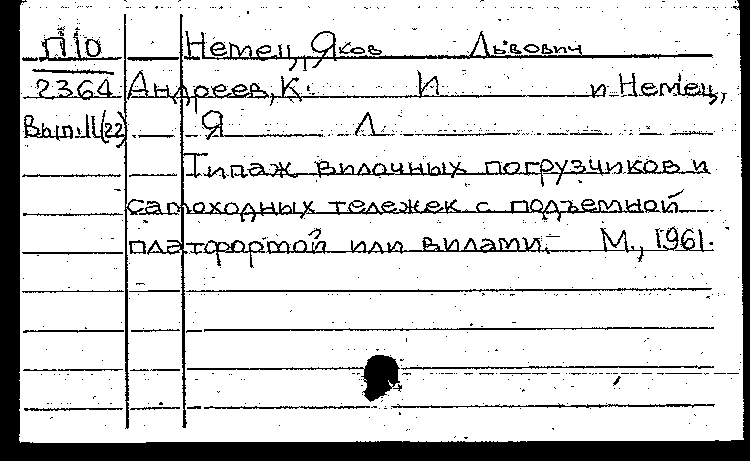 П10 Немец, Яков Львович
2364 Андреев, К. И. и Немец,
Вып.11(22) Я. Л.
Типаж вилочных погрузчиков и
самоходных тележек с подъемной
платформой или вилами.- М., 1961.